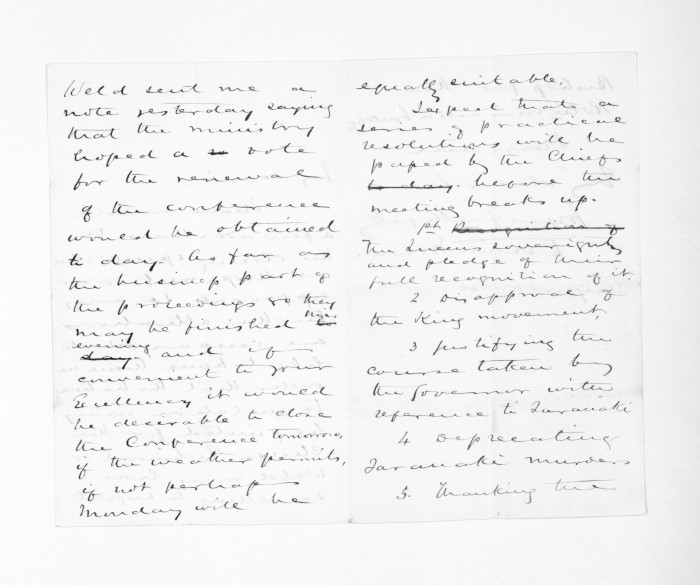 Weld sent me a
note yesterday saying
that the ministry
hoped a vote
for the renewal
of the conference
would be obtained
to day. As far as
the business part of
the proceedings go they
may be finished this
evening day. and if
convenient to your
Excellency it would
be desirable to close
the Conference tomorrow
if the weather permits,
if not perhaps
Monday will be
equally suitable.
I expect that a
series of practical
resolutions will be
passed by the Chiefs
to day. before the
meeting breaks up.
1st Recognition of
The Queens sovereignty
and pledge of their
full recognition of it
2 Disapproval of
the King movement
3 justifying the
course taken by
the Governor with
reference to Taranaki
4 Deprecating
Taranaki murders
5. Thanking the